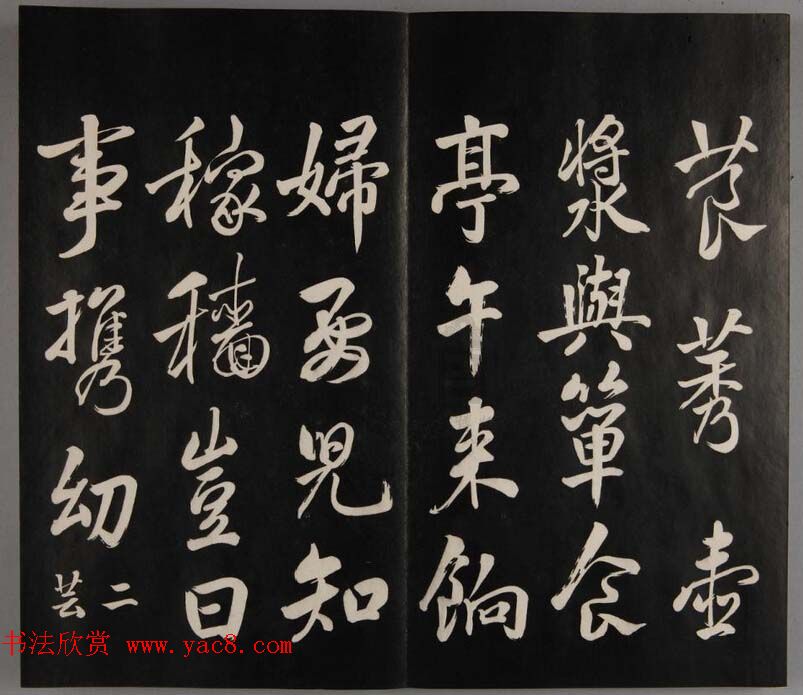 莨莠壺
漿與簞食
亭午来餉
婦要兒知
稼穡豈曰
事携幼
二芸
书法欣赏 www.yac8.com